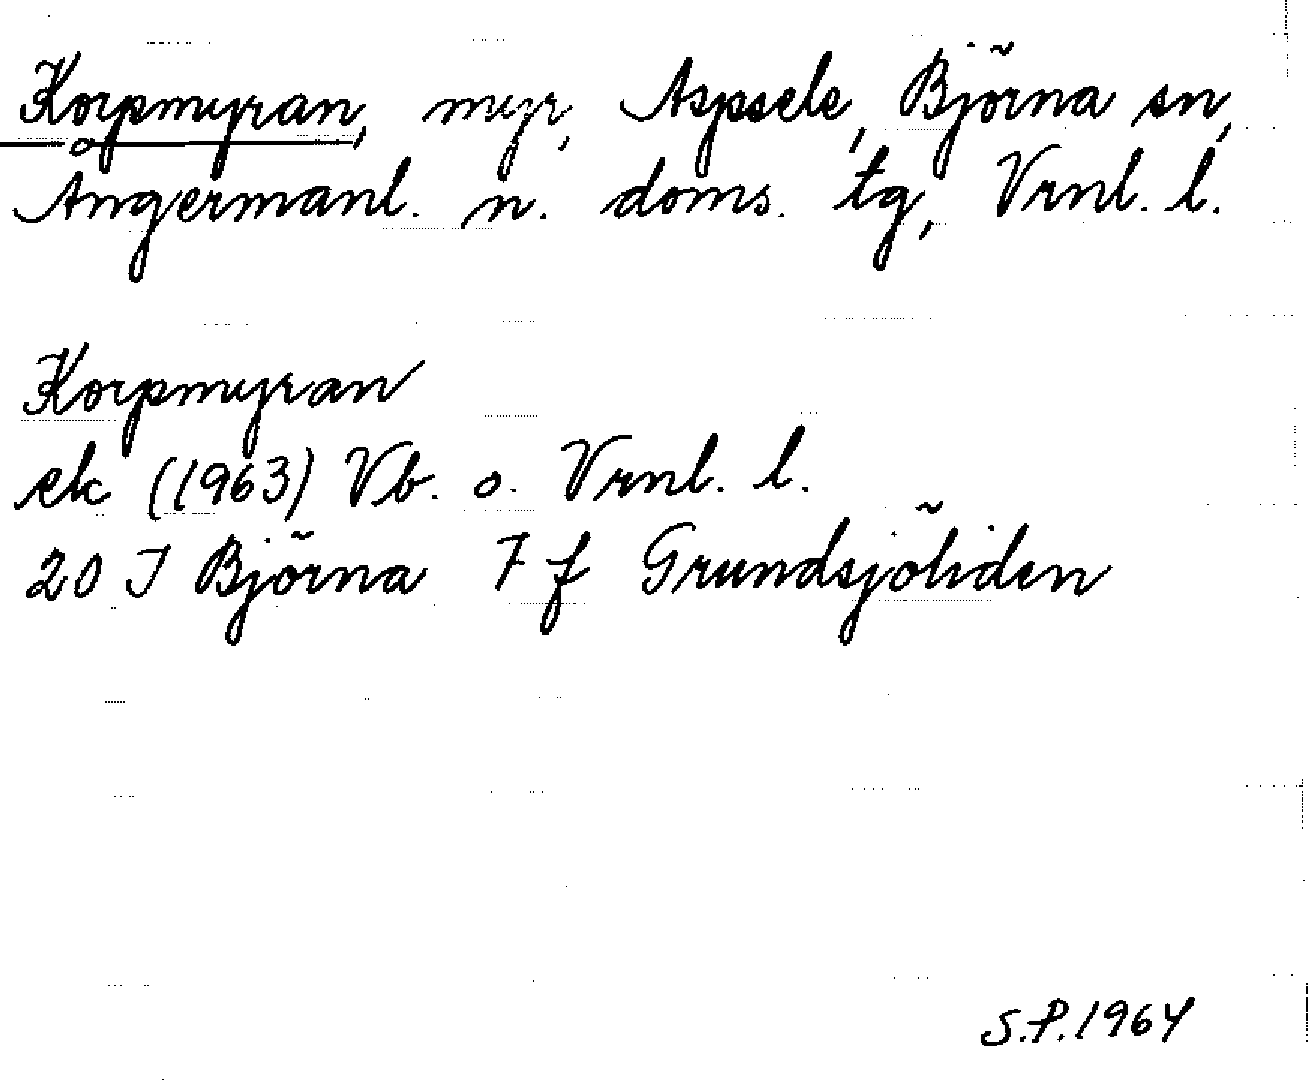 Korpmyran, myr, Aspsele, Björna sn,
Ångermanl. n. doms. tg, Vrnl. l.
Korpmyran
ek (1963) Vb. o. Vrnl. l.
20 I Björna 7 f Grundsjöliden
S.P. 1964